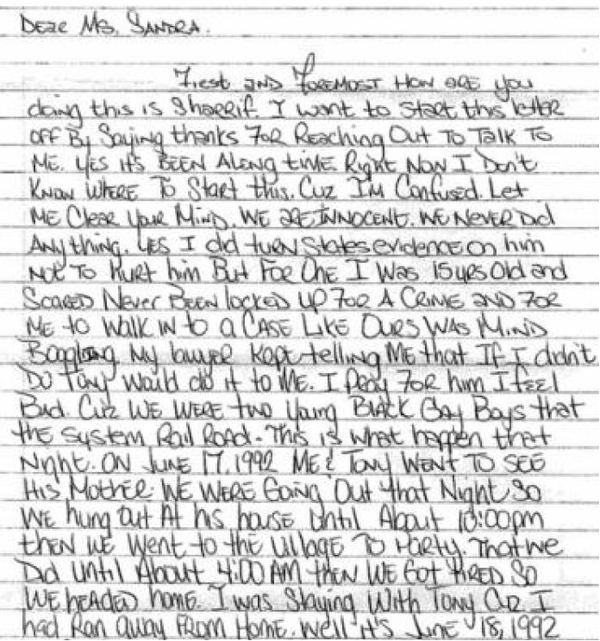 Dear Ms. Sandra.
First and Foremost How are you
doing this is Sharrif. I want to start this letter
off By Saying thanks for Reaching Out To Talk To
Me. Yes it's Been Along time. Right Now I Don't
Know Where To Start this. Cuz I'm Confused. Let
Me Clear Your Mind. We are Innocent. We Never Did
Any thing. Yes I did turn States evidence on him
Not To Hurt him But For One I Was 15yrs Old and
Scared Never Been locked up For A Crime and For
Me to Walk in to a Case Like Ours Was Mind
Boggling. My lawyer Kept telling Me that If I didn't
Do Tony would do it to Me. I Pray For him I feel
Bad. Cuz We Were two Young Black Gay Boys that
the System Rail Road. This is what happen that
Night. On June 17, 1992 Me & Tony Went To See
His Mother. We Were Going Out that Night So
We hung out At his house Until About 10:00pm
then We Went to the Village To Party. That we
Did Until About 4:00 AM then We Got tired So
We headed home. I was Staying With Tony Cuz I
had Ran away From Home. Well it's June 18, 1992